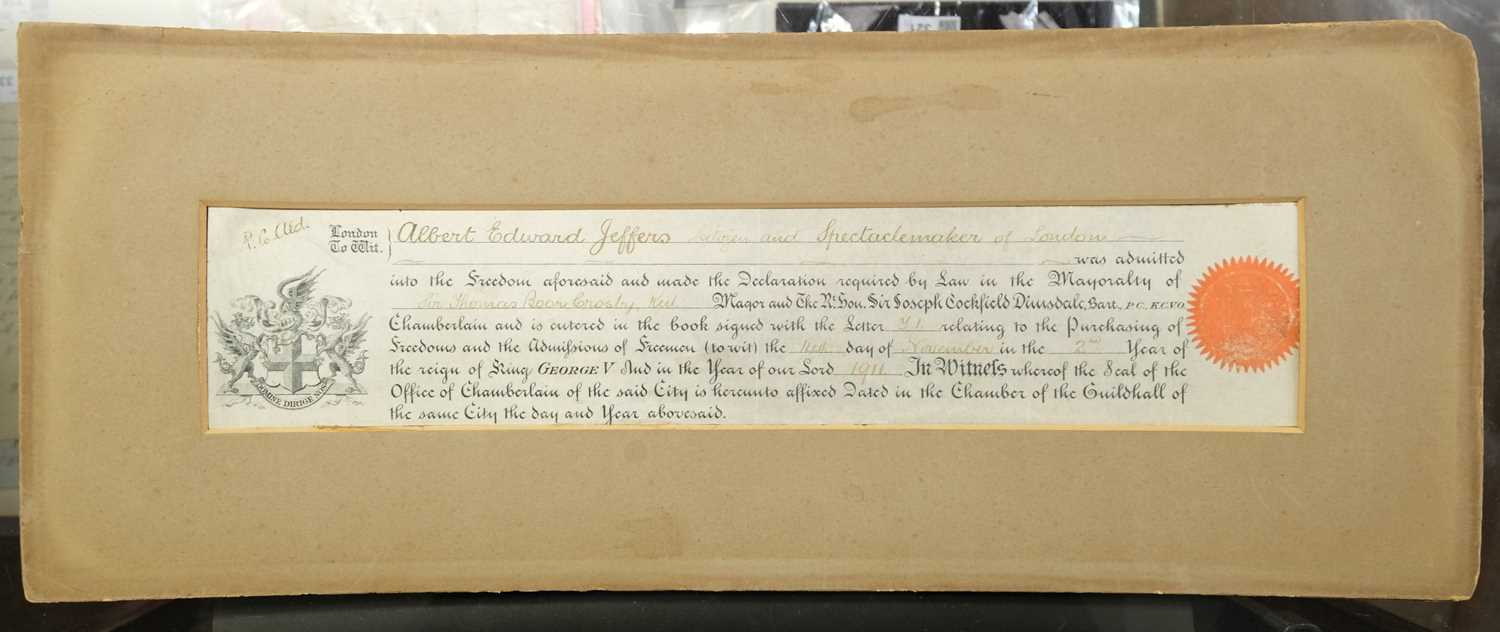 P. Co. Ald.
London
To Wit.
Albert Edward Jeffers Citizen and Spectaclemaker of London
was admitted
into the Freedom aforesaid and made the Declaration required by Law in the Mayoralty of
Sir Thomas Boor Crosby, Knt. Mayor and The Rt. Hon. Sir Joseph Cockfield Dimsdale, Bart., P.C. K.C.V.O
Chamberlain and is entered in the book signed with the Letter relating to the Purchasing of
Freedoms and the Admissions of Freemen (to wit) the day of November in the 2nd Year of
the reign of King GEORGE V And in the Year of our Lord 1911 In Witness whereof the Seal of the
Office of Chamberlain of the said City is hereunto affixed Dated in the Chamber of the Guildhall of
the same City the day and Year abovesaid.
DOMINE DIRIGE NOS
321